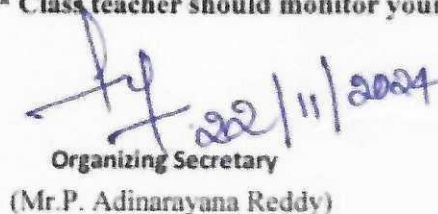 * Class teacher should monitor your
22/11/2024
Organizing Secretary
(Mr.P. Adinarayana Reddy)